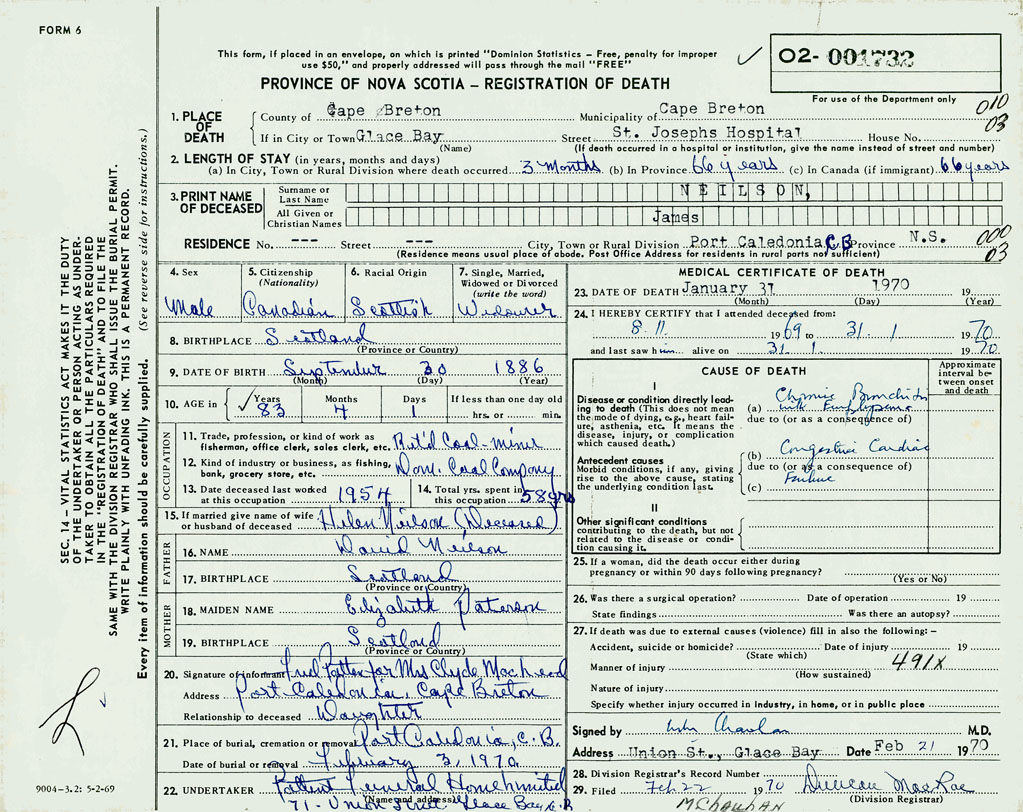 FORM 6
This form, if placed in an envelope, on which is printed "Dominion Statistics – Free, penalty for improper
use $50," and properly addressed will pass through the mail "FREE"
02- 001732
PROVINCE OF NOVA SCOTIA – REGISTRATION OF DEATH
For use of the Department only
010
03
1. PLACE OF DEATH County of Cape Breton Municipality of Cape Breton
If in City or Town Glace Bay Street St. Josephs Hospital House No.
(Name) (If death occurred in a hospital or institution, give the name instead of street and number)
2. LENGTH OF STAY (in years, months and days)
(a) In City, Town or Rural Division where death occurred 3 Months (b) In Province 66 years (c) In Canada (if immigrant) 66 years
3. PRINT NAME OF DECEASED Surname or Last Name NEILSON,
All Given or Christian Names James
RESIDENCE No. --- Street --- City, Town or Rural Division Port Caledonia CB Province N.S.
(Residence means usual place of abode. Post Office Address for residents in rural parts not sufficient)
000
03
4. Sex Male
5. Citizenship (Nationality) Canadian
6. Racial Origin Scottish
7. Single, Married, Widowed or Divorced (write the word) Widower
8. BIRTHPLACE Scotland
(Province or Country)
9. DATE OF BIRTH September 30 1886
(Month) (Day) (Year)
10. AGE in Years 83 Months 4 Days 1 If less than one day old hrs. or min.
OCCUPATION
11. Trade, profession, or kind of work as fisherman, office clerk, sales clerk, etc. Ret'd Coal-miner
12. Kind of industry or business, as fishing, bank, grocery store, etc. Dom. Coal Company
13. Date deceased last worked at this occupation 1954
14. Total yrs. spent in this occupation 58 yrs
15. If married give name of wife or husband of deceased Helen Neilson (Deceased)
FATHER
16. NAME David Neilson
17. BIRTHPLACE Scotland
(Province or Country)
MOTHER
18. MAIDEN NAME Elizabeth Paterson
19. BIRTHPLACE Scotland
(Province or Country)
20. Signature of informant for Mrs Clyde MacLeod
Address Port Caledonia, Cape Breton
Relationship to deceased Daughter
21. Place of burial, cremation or removal Port Caledonia, C.B.
Date of burial or removal February 3, 1970
22. UNDERTAKER Funeral Home Limited
(Name and address)
71- Union Street Glace Bay C.B
MEDICAL CERTIFICATE OF DEATH
23. DATE OF DEATH January 31 1970 19
(Month) (Day) (Year)
24. I HEREBY CERTIFY that I attended deceased from:
8. 11. 1969 to 31. 1 1970
and last saw him alive on 31. 1. 1970
CAUSE OF DEATH
Approximate interval between onset and death
I
Disease or condition directly leading to death (This does not mean the mode of dying, e.g., heart failure, asthenia, etc. It means the disease, injury, or complication which caused death.)
(a) Chronic Bronchitis
with Emphysema
due to (or as a consequence of)
Antecedent causes
Morbid conditions, if any, giving rise to the above cause, stating the underlying condition last.
(b) Congestive Cardiac
due to (or as a consequence of)
Failure
(c)
II
Other significant conditions
contributing to the death, but not related to the disease or condition causing it.
25. If a woman, did the death occur either during pregnancy or within 90 days following pregnancy?
(Yes or No)
26. Was there a surgical operation? Date of operation 19
State findings Was there an autopsy?
27. If death was due to external causes (violence) fill in also the following: –
Accident, suicide or homicide? Date of injury 19
(State which)
Manner of injury 491X
(How sustained)
Nature of injury
Specify whether injury occurred in industry, in home, or in public place
Signed by M.D.
Address Union St., Glace Bay Date Feb 21 1970
28. Division Registrar's Record Number
29. Filed Feb 22 1970 Duncan MacRae
(Division Registrar)
SEC. 14 – VITAL STATISTICS ACT MAKES IT THE DUTY
OF THE UNDERTAKER OR PERSON ACTING AS UNDERTAKER
TO OBTAIN ALL THE PARTICULARS REQUIRED
IN THE "REGISTRATION OF DEATH" AND TO FILE THE
SAME WITH THE DIVISION REGISTRAR WHO SHALL ISSUE THE BURIAL PERMIT.
WRITE PLAINLY WITH UNFADING INK. THIS IS A PERMANENT RECORD.
Every item of information should be carefully supplied. (See reverse side for instructions.)
9004-3.2: 5-2-69